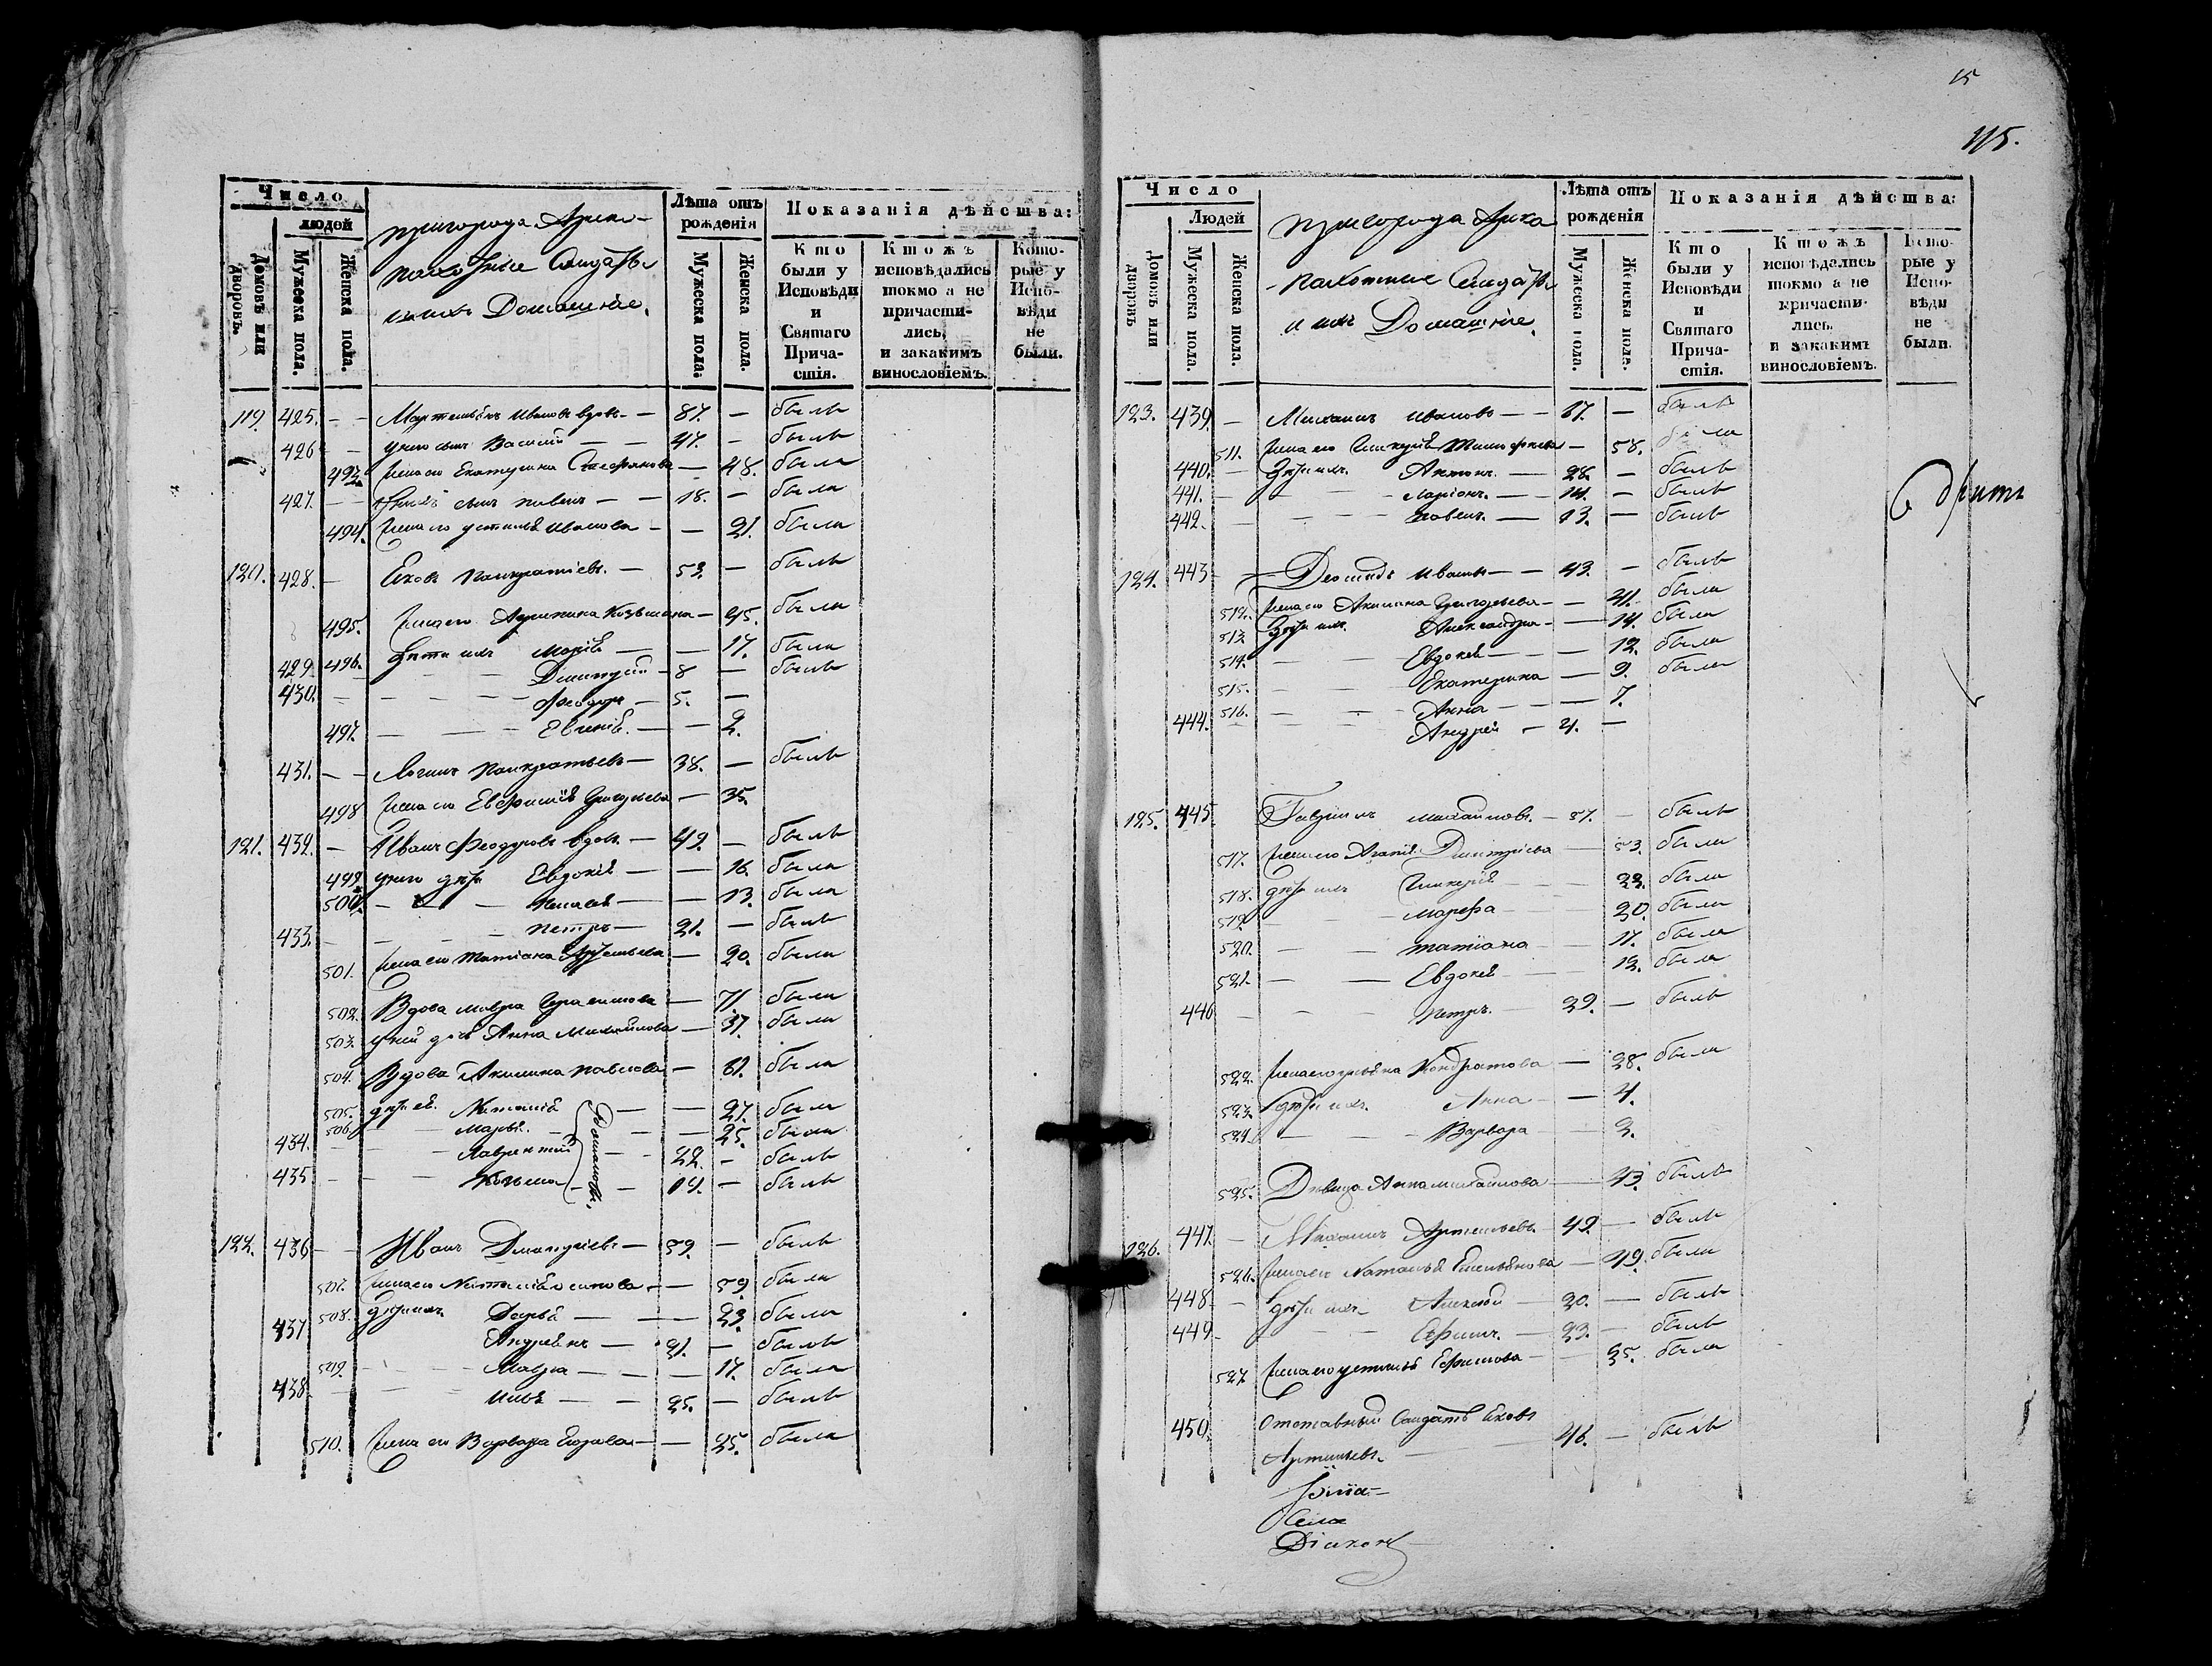 Число
людей
Домовъ или дворовъ.
Мужеска пола.
Женска пола.
пригорода Арска
пахотные Солдаты
и ихъ Домашніе.
Лѣта отъ рожденія
Мужеска пола.
Женска пола.
Показанія дѣйства:
Кто были у Исповѣди и Святаго Причастія.
Ктожъ исповѣдались токмо а не причастились, и закакимъ винословіемъ.
Которые у Исповѣди не были.
119. 425. — — Мартемьянъ Ивановъ вдовъ — 87. — былъ
426 — у него сынъ Василій — — 47. — былъ
493. жена его Екатерина Стефанова — 48. была
427. — — у нихъ сынъ Павелъ — — 18. — былъ
494. жена его Устинья Иванова — — 21. была
120. 428. — Яковъ Панкратіевъ. — 53. — былъ
495. жена его Агрипина Козьмина — 45. была
496. дети ихъ Марія — — 17. была
429 — Димитрій — 8 — былъ
430. — Феодоръ — 5. —
497. — — — Евгенія. — — 2.
431. — — Логинъ Панкратьевъ — 38. — былъ
498 жена его Евфимія Григорьева — 35.
121. 432. — Иванъ Феодоровъ вдовъ. — 49. — былъ
499 у него дѣти Евдокія — — 16. была
500. — — Пелагея — — 13. была
433. — — Петръ — 21. — былъ
501. жена его Татіана Артемьева — 20. была
502. Вдова Мавра Герасимова — 71. была
503. у ней дочь Анна Михайлова — 37. была
504. Вдова Акилина Павлова — 61. была
505. дѣти ея. Наталія — — 27. была
506. — — Марья. — — 25. была
434. — — Лаврентій — — 22. — былъ
435 — — Козьма — — 19. — былъ
122. 436 — — Иванъ Димитріевъ — 59. — былъ
507. жена его Наталія Осипова — — 59. была
508. дѣти ихъ Дарья — — 23. была
437 Андреянъ — 21. — былъ
509. — — — Мавра — — 17. была
438 — — — Илья — — 25. — былъ
510. жена его Варвара Егорова — — 25. была
15
45.
Число
Людей
Домовъ или дворовъ
Мужеска пола.
Женска пола.
пригорода Арска
пахотные Солдаты
и ихъ Домашніе.
Лѣта отъ рожденія
Мужеска пола.
Женска пола.
Показанія дѣйства:
Кто были у Исповѣди и Святаго Причастія.
Ктожъ исповѣдались токмо а не причастились. и закакимъ винословіемъ.
Которые у Исповѣди не были.
123. 439. — Михаилъ Ивановъ — — 67. — былъ
511. жена его Гликерія Тимофеева — 58. была
440. — Дѣти ихъ. Антонъ. — 28. — былъ
441. — — Ларіонъ. — 14. — былъ
442. — — Павелъ. — 13. — былъ
124. 443 — Леонидъ Ивановъ — — 43. — былъ
512. жена его Акилина Григорьева — — 41. была
513. Дѣти ихъ. Александра — — 14. была
514. — — Евдокея — — — 12. была
515. — — Екатерина — 9. была
516. — — Анна — — — 7.
444. — — Андрей — 4. —
125. 445. Гавріилъ Михайловъ. — 57. — былъ
517. жена его Агапія Димитріева — 53. была
518. дѣти ихъ Гликерія — — 23. была
519. — Марфа — 20. была
520. — — Татіана — — 17. была
521. — — Евдокея — — 12. была
446 — — — Петръ. — 29. — былъ
522. жена его Ульяна Кондратова — 28. была
523. дѣти ихъ. Анна — — 4.
524. — — — Варвара — 2.
525. Дѣвица Анна Михайлова — 43. была
126. 447. — Михаилъ Артемьевъ — 49. — былъ
526. жена его Наталья Емельянова — 49. была
448. — дѣти ихъ — Алексѣй — 30. — былъ
449. — — — Ефимъ. — 23. — былъ
527. жена его Устинья Ефимова — 25. была
450. Отставный Солдатъ Яковъ
Артемьевъ. — 46. — былъ
села
Діаконъ